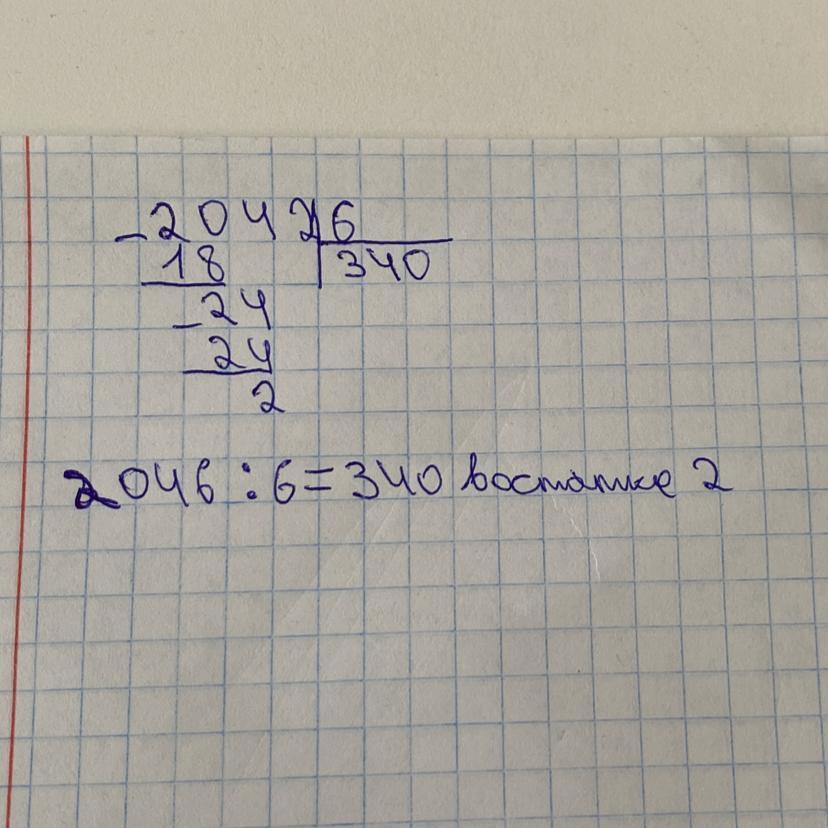 - 2042 6
18 340
- 24
24
2
2046 : 6 = 340 востатке 2